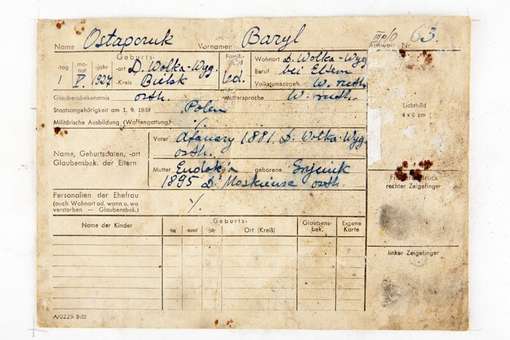 Name Ostapczuk Vorname: Baryl
Ausweis Nr. 63.
Geburts-
tag monat jahr -ort D. Wolka-Wyg. Wohnort D. Wolka-Wyg
1 V. 1927 -Kreis Bielsk led. Beruf bei Eltern
Volkszugehörigk. W. ruth.
Glaubensbekenntnis orth. Muttersprache W. ruth.
Staatsangehörigkeit am 1. 9. 1939 Polen
Militärische Ausbildung (Waffengattung) ./.
Lichtbild
4 x 6 cm
Name, Geburtsdaten, -ort
Glaubensbek. der Eltern
Vater: 1881. D. Wolka-Wyg.
orth.
Mutter geborene
1895 D. orth
rechter Zeigefinger
Personalien der Ehefrau
(auch Wohnort od. wann u. wo
verstorben — Glaubensbek.)
./.
Name der Kinder
Geburts-
tag monat jahr Ort (Kreis)
Glaubens-
bek.
Eigene
Karte
linker Zeigefinger